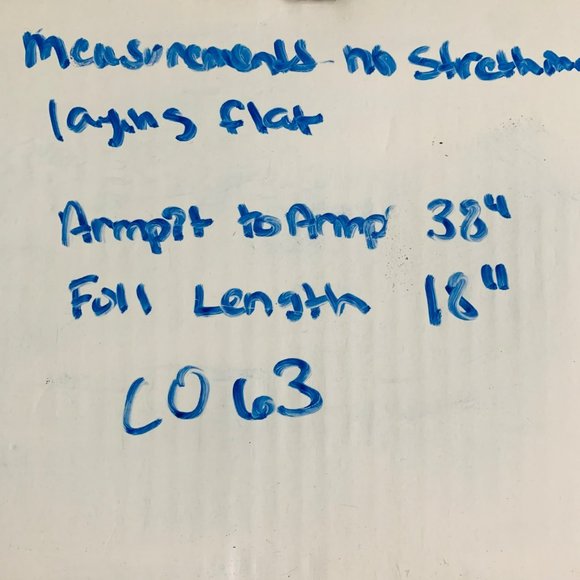 Measurements no Strethin
laying flat
Armpit to Armp 38"
Foll Length 18"
CO63